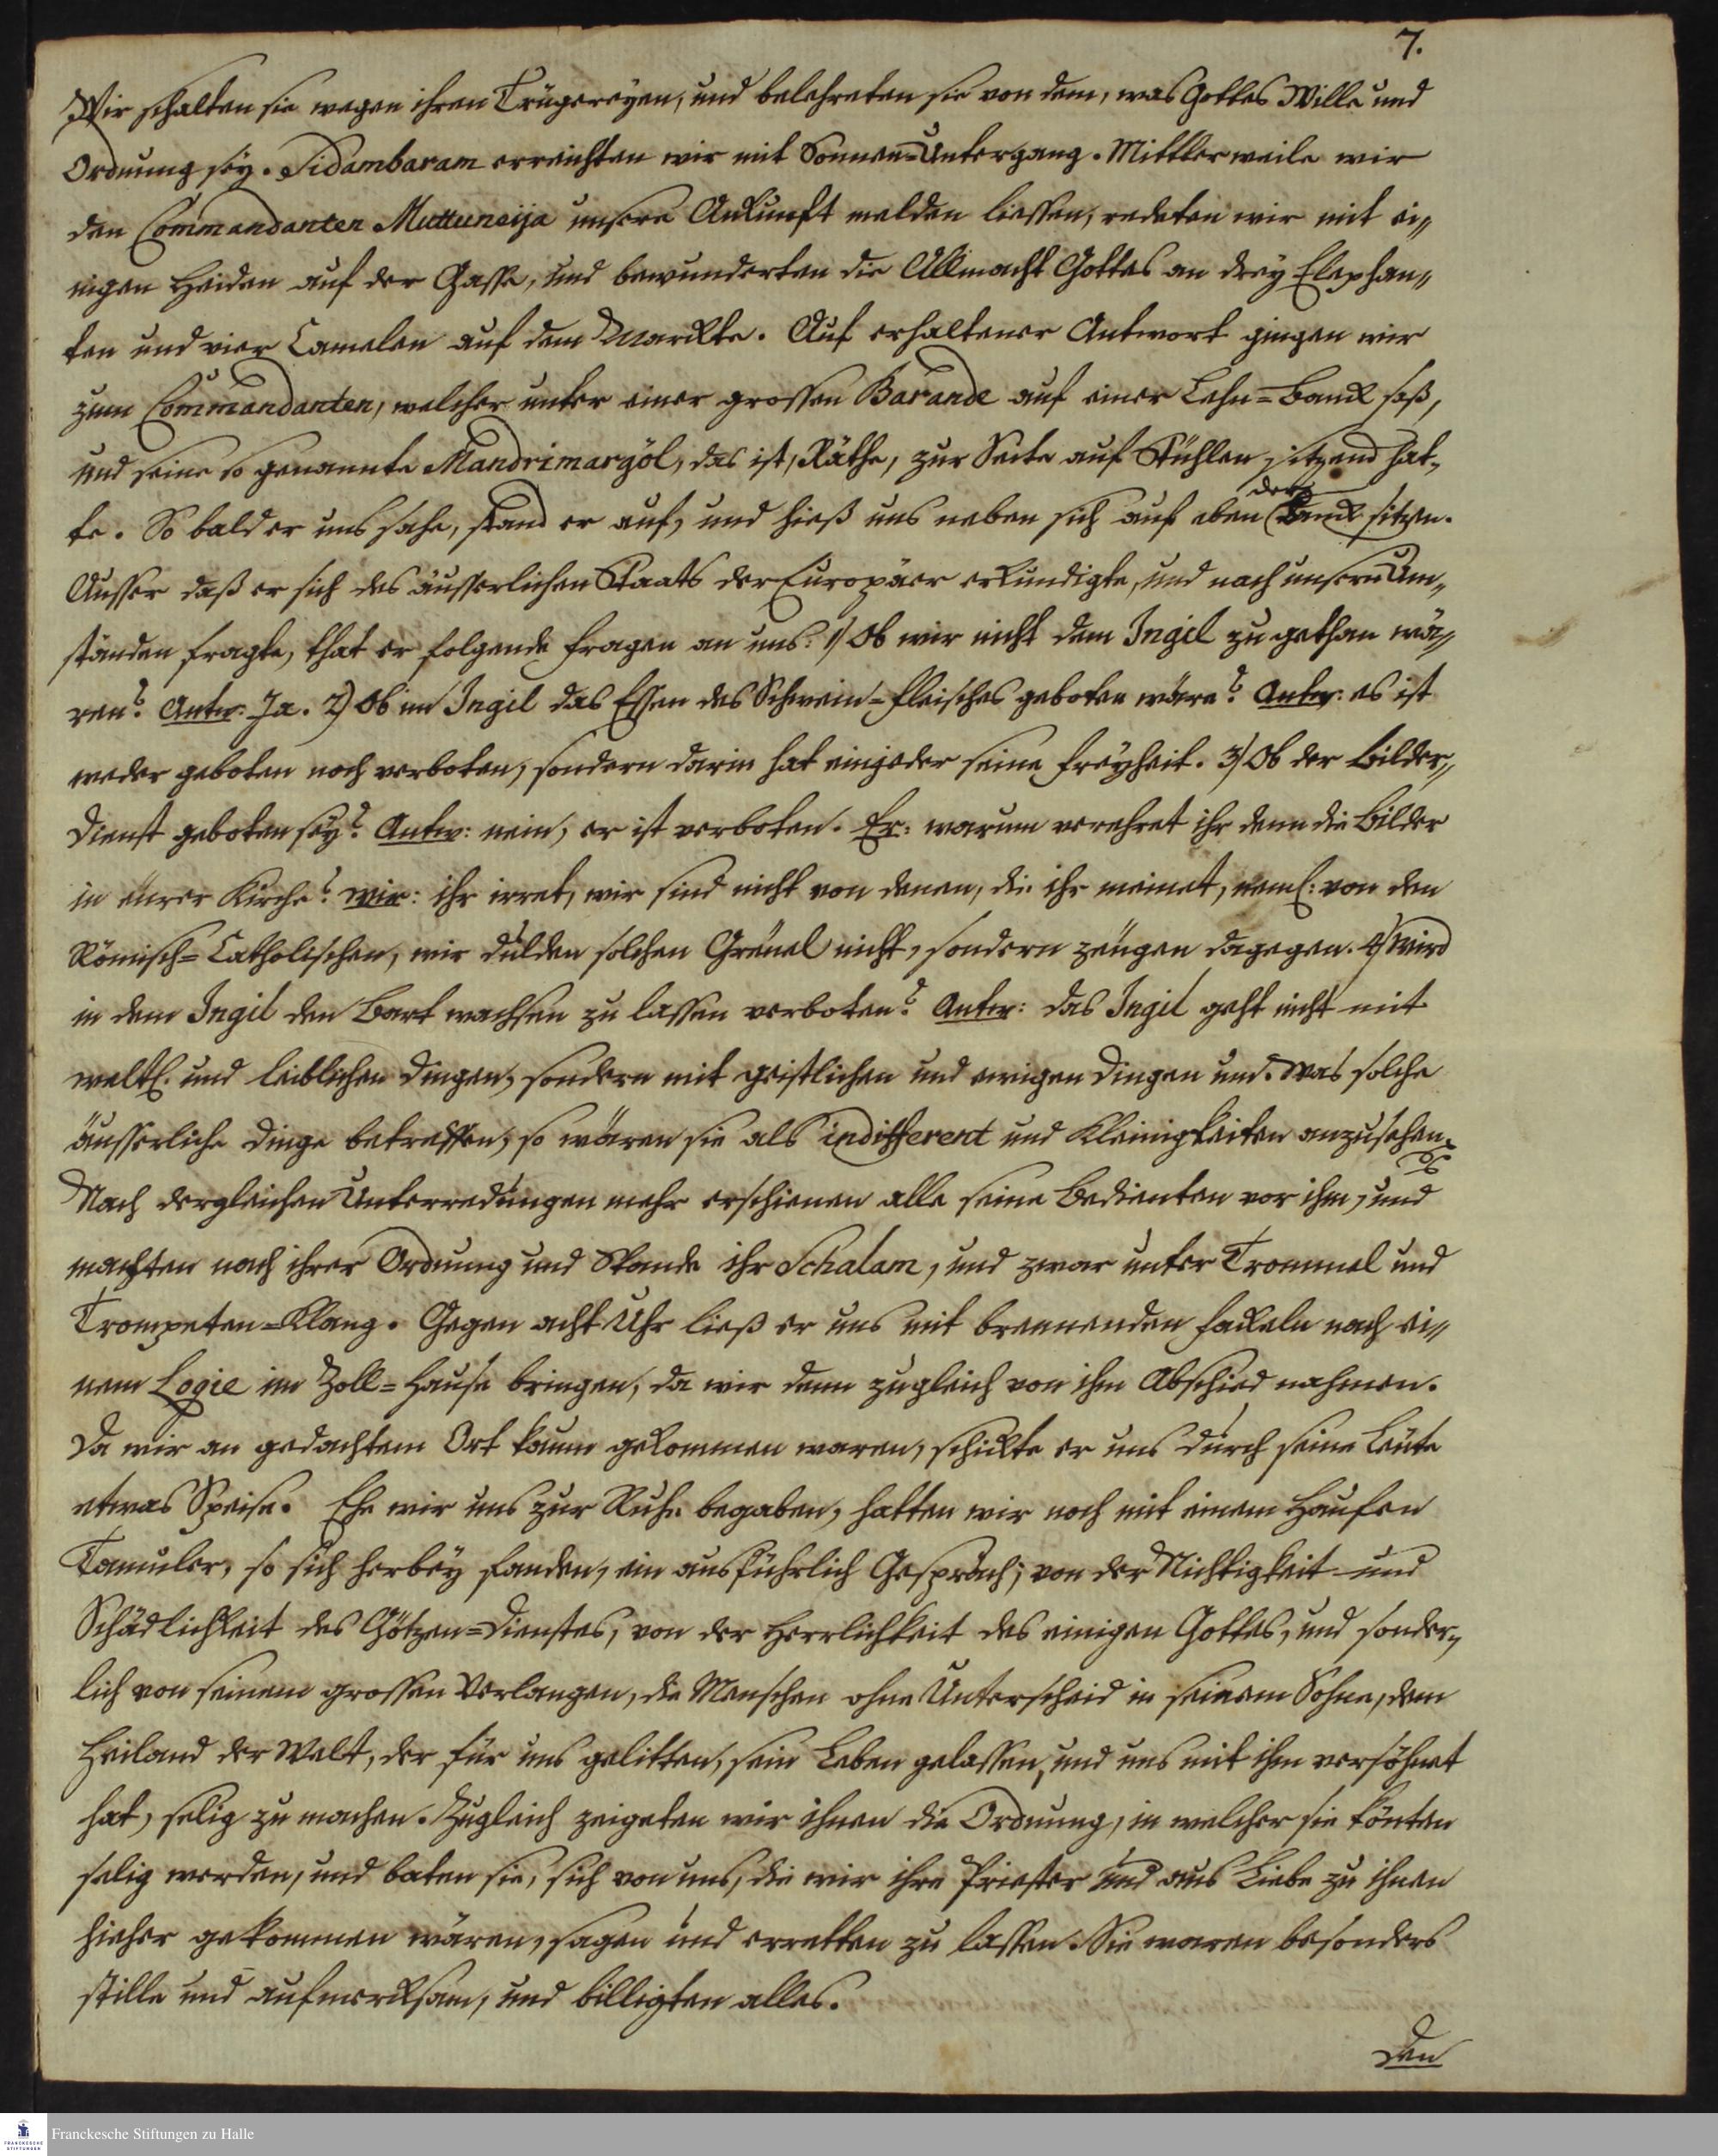 7.
Wir schalten sie wegen ihren Trügereyen, und belehreten sie von dem, was Gottes Wille und
Ordnung sey. Sidambaram erreichten wir mit Sonnen=Untergang. Mittlerweile wir
den Commandanten Muttuneija unsere Ankunft melden liessen, redeten wir mit ei„
nigen Heiden auf der Gasse, und bewunderten die Allmacht Gottes an drey Elephan„
ten und vier Camelen auf dem Marckte. Auf erhaltener Antwort gingen wir
zum Commandanten, welcher unter einer grossen Barande auf einer Lehn=Banck saß,
und seine so genannte Mandrimargöl, das ist, Räthe, zur Seite auf Stühlen sitzend hat„
te. So bald er uns sahe, stand er auf, und hieß uns neben sich auf eben der Banck sitzen.
Ausser daß er sich des äusserlichen Staats der Europäer erkundigte, und nach unsern Um„
ständen fragte, that er folgende Fragen an uns: 1) Ob wir nicht dem Ingil zugethan wä„
ren? Antw: Ja. 2) Ob im Ingil das Essen des Schwein=Fleisches geboten wäre? Antw: es ist
weder geboten noch verboten, sondern darin hat einjeder seine Freyheit. 3) Ob der Bilder„
Dienst geboten sey? Antw: nein, er ist verboten. Er: warum verehret ihr denn die Bilder
in eurer Kirche? wir: ihr irret, wir sind nicht von denen, die ihr meinet, neml: von den
Römisch=Catholischen, wir dulden solchen Greuel nicht, sondern zeugen dagegen. 4) Wird
in dem Ingil den Bart wachsen zu lassen verboten? Antw: das Ingil geht nicht mit
weltl. und leiblichen Dingen, sondern mit geistlichen und ewigen Dingen um. Was solche
äusserliche Dinge betreffen, so wären sie als indifferent und Kleinigkeiten anzusehen.
Nach dergleichen Unterredungen mehr erschienen alle seine Bedienten vor ihm, und
machten nach ihrer Ordnung und Stande ihr Schalam, und zwar unter Trommel und
Trompeten=Klang. Gegen acht Uhr ließ er uns mit brennenden Fackeln nach ei„
nem Logie im Zoll=Hause bringen, da wir denn zugleich von ihm Abschied nahmen.
Da wir an gedachtem Ort kaum gekommen waren, schickte er uns durch seine Leute
etwas Speise. Ehe wir uns zur Ruhe begaben, hatten wir noch mit einem Haufen
Tamuler, so sich herbey fanden, ein ausführlich Gespräch, von der Nichtigkeit und
Schädlichkeit des Götzen=Dienstes, von der Herrlichkeit des einigen Gottes, und sonder„
lich von seinem grossen Verlangen, die Menschen ohne Unterscheid in seinem Sohne, dem
Heiland der Welt, der für uns gelitten, sein Leben gelassen, und uns mit ihm versöhnet
hat, selig zu machen. Zugleich zeigeten wir ihnen die Ordnung, in welcher sie könten
selig werden, und baten sie, sich von uns, die wir ihre Priester und aus Liebe zu ihnen
hieher gekommen wären, sagen und erretten zu lassen. Sie waren besonders
stille und aufmercksam, und billigten alles.
Den
FRANCKESCHE
STIFTUNGEN
Franckesche Stiftungen zu Halle